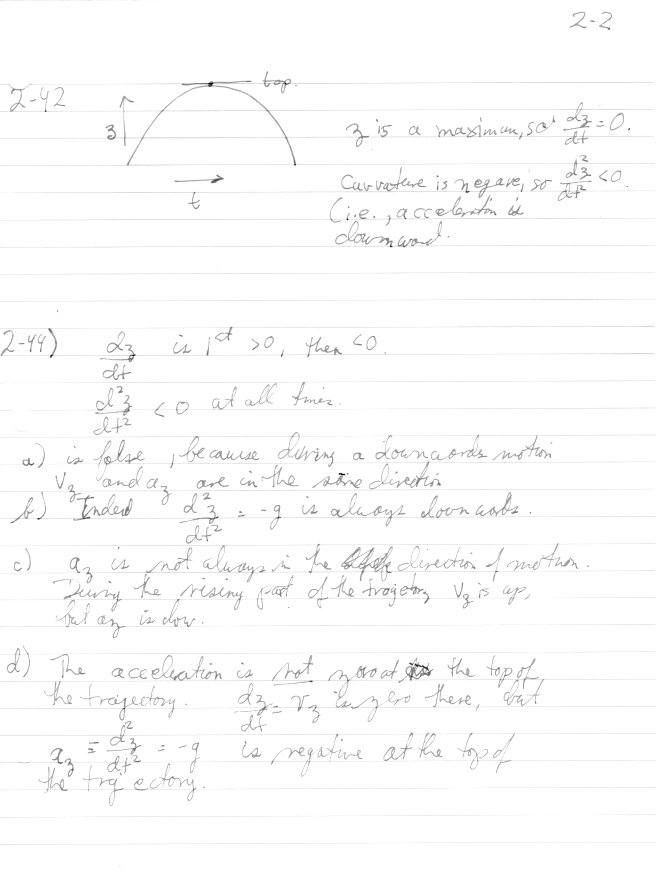 2-2
2-42
top.
z
t
z is a maximum, so dz/dt = 0.
Curvature is negave, so d²z/dt² < 0.
(i.e., acceleration is
downward.
2-44) dz/dt is 1st > 0, then < 0.
d²z/dt² < 0 at all times.
a) is false, because during a downwards motion
Vz and az are in the same direction
b) Indeed d²z/dt² = -g is always downwards.
c) az is not always in the direction of motion.
During the rising part of the trajectory Vz is up,
but az is dow.
d) The acceleration is not zero at the top of
the trajectory. dz/dt = Vz is zero there, but
az = d²z/dt² = -g is negative at the top of
the trajectory.